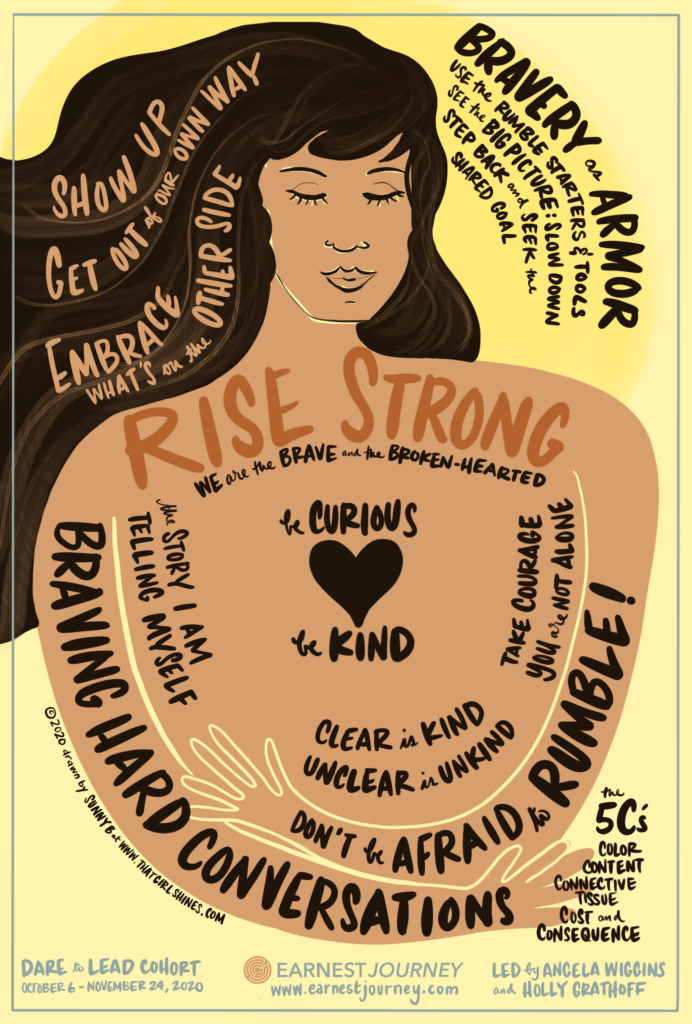 SHOW UP
GET OUT of OUR OWN WAY
EMBRACE
WHAT'S on the OTHER SIDE
BRAVERY as ARMOR
USE the RUMBLE STARTERS & TOOLS
SEE the BIG PICTURE: SLOW DOWN
STEP BACK and SEEK the
SHARED GOAL
RISE STRONG
WE are the BRAVE and the BROKEN-HEARTED
be CURIOUS
be KIND
the STORY I AM
TELLING MYSELF
TAKE COURAGE
YOU are NOT ALONE
CLEAR is KIND
UNCLEAR is UNKIND
DON'T be AFRAID to RUMBLE!
BRAVING HARD CONVERSATIONS
©2020 drawn by SUNNY B at WWW.THATGIRLSHINES.COM
the
5C's
COLOR
CONTENT
CONNECTIVE
TISSUE
COST and
CONSEQUENCE
DARE to LEAD COHORT
OCTOBER 6 - NOVEMBER 24, 2020
EARNEST JOURNEY
www.earnestjourney.com
LED by ANGELA WIGGINS
and HOLLY GRATHOFF